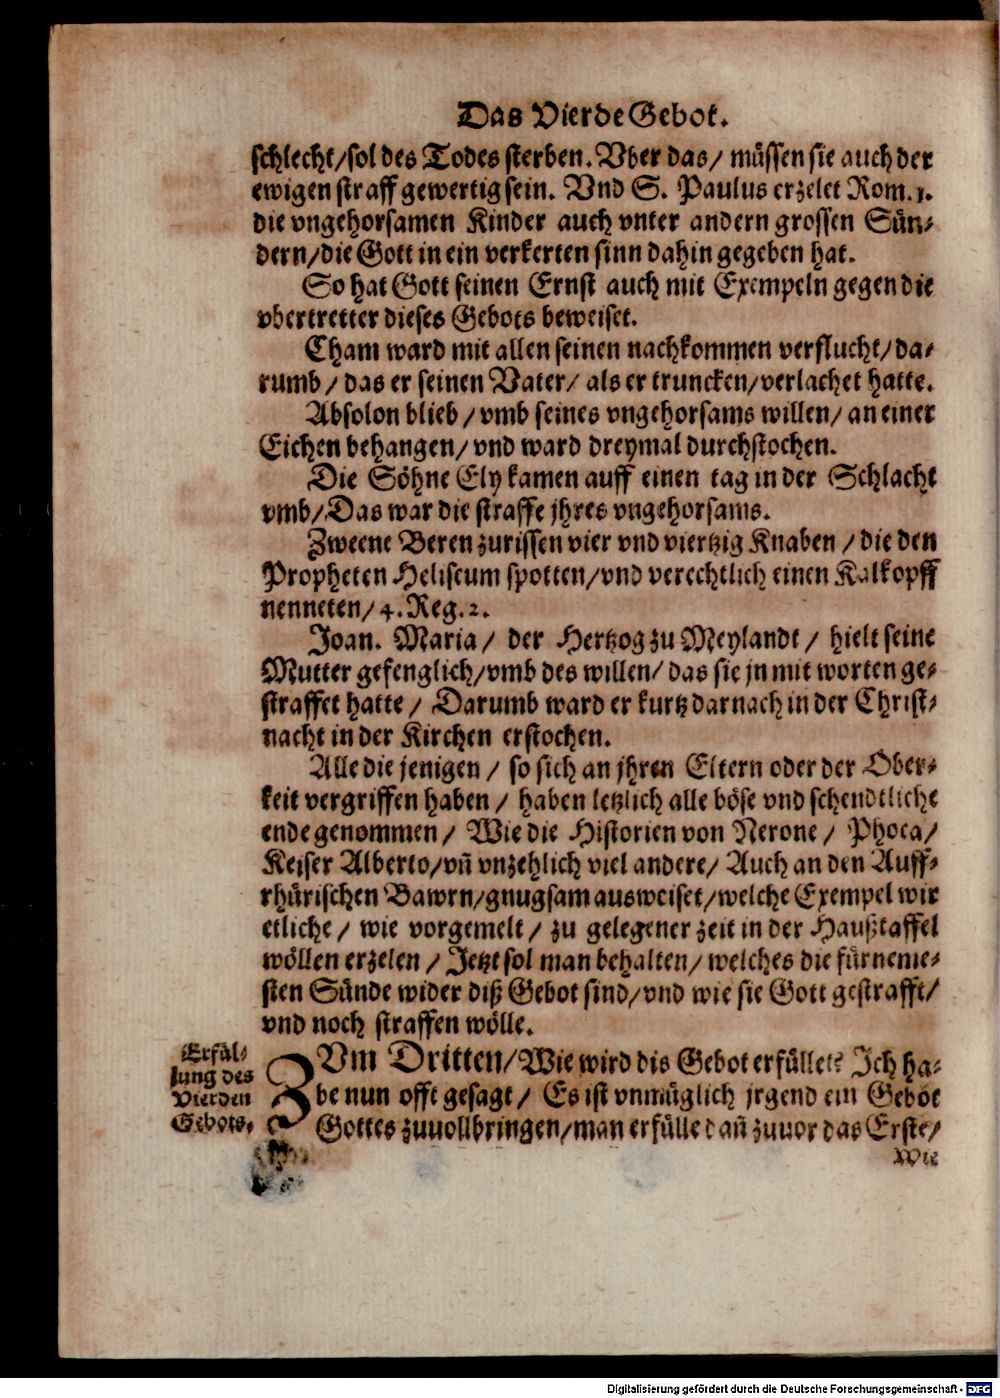 Das Vierde Gebot.
schlecht/sol des Todes sterben. Vber das/ müssen sie auch der
ewigen straff gewertig sein. Vnd S. Paulus erzelet Rom. 1.
die vngehorsamen Kinder auch vnter andern grossen Sün-
dern/die Gott in ein verkerten sinn dahin gegeben hat.
So hat Gott seinen Ernst auch mit Exempeln gegen die
vbertretter dieses Gebots beweiset.
Cham ward mit allen seinen nachkommen verflucht/ da-
rumb / das er seinen Vater/ als er truncken/verlachet hatte.
Absolon blieb / vmb seines vngehorsams willen/ an einer
Eichen behangen/ vnd ward dreymal durchstochen.
Die Söhne Ely kamen auff einen tag in der Schlacht
vmb/Das war die straffe jhres vngehorsams.
Zweene Beren zurissen vier vnd viertzig Knaben / die den
Propheten Heliseum spotten/vnd verechtlich einen Kalkopff
nenneten/ 4. Reg. 2.
Joan. Maria/ der Hertzog zu Meylandt / hielt seine
Mutter gefenglich/vmb des willen/ das sie jn mit worten ge-
straffet hatte / Darumb ward er kurtz darnach in der Christ-
nacht in der Kirchen erstochen.
Alle die jenigen / so sich an jhren Eltern oder der Ober-
keit vergriffen haben / haben letzlich alle böse vnd schendtliche
ende genommen / Wie die Historien von Nerone / Phoca/
Keiser Alberto/vñ vnzehlich viel andere/ Auch an den Auff-
rhürischen Bawrn/gnugsam ausweiset/welche Exempel wir
etliche / wie vorgemelt / zu gelegener zeit in der Haußtaffel
wöllen erzelen / Jetzt sol man behalten/ welches die fürneme-
sten Sünde wider diß Gebot sind/vnd wie sie Gott gestrafft/
vnd noch straffen wölle.
Erfül-
lung des
Vierden
Gebots.
ZVm Dritten/Wie wird dis Gebot erfüllet? Ich ha-
be nun offt gesagt / Es ist vnmüglich jrgend ein Gebot
Gottes zuvollbringen/man erfülle dañ zuvor das Erste/
Wie
Digitalisierung gefördert durch die Deutsche Forschungsgemeinschaft - DFG